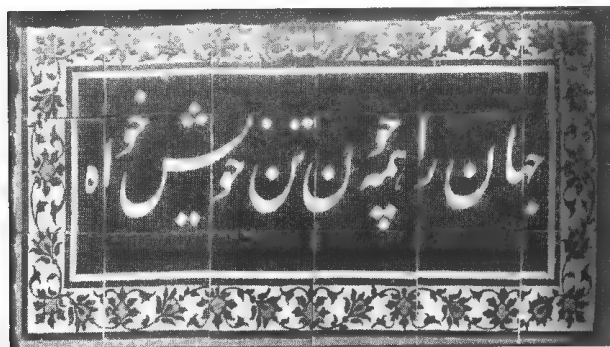 جهان را همه چون تن خویش خواه